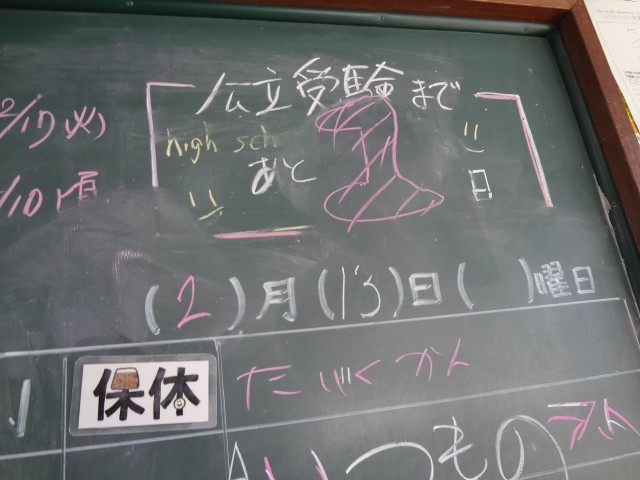 公立受験まで
high sch
あと 1 日
2/17(火)
/10 頃
(2)月(13)日( )曜日
1 保体 たいくかん
いつもの